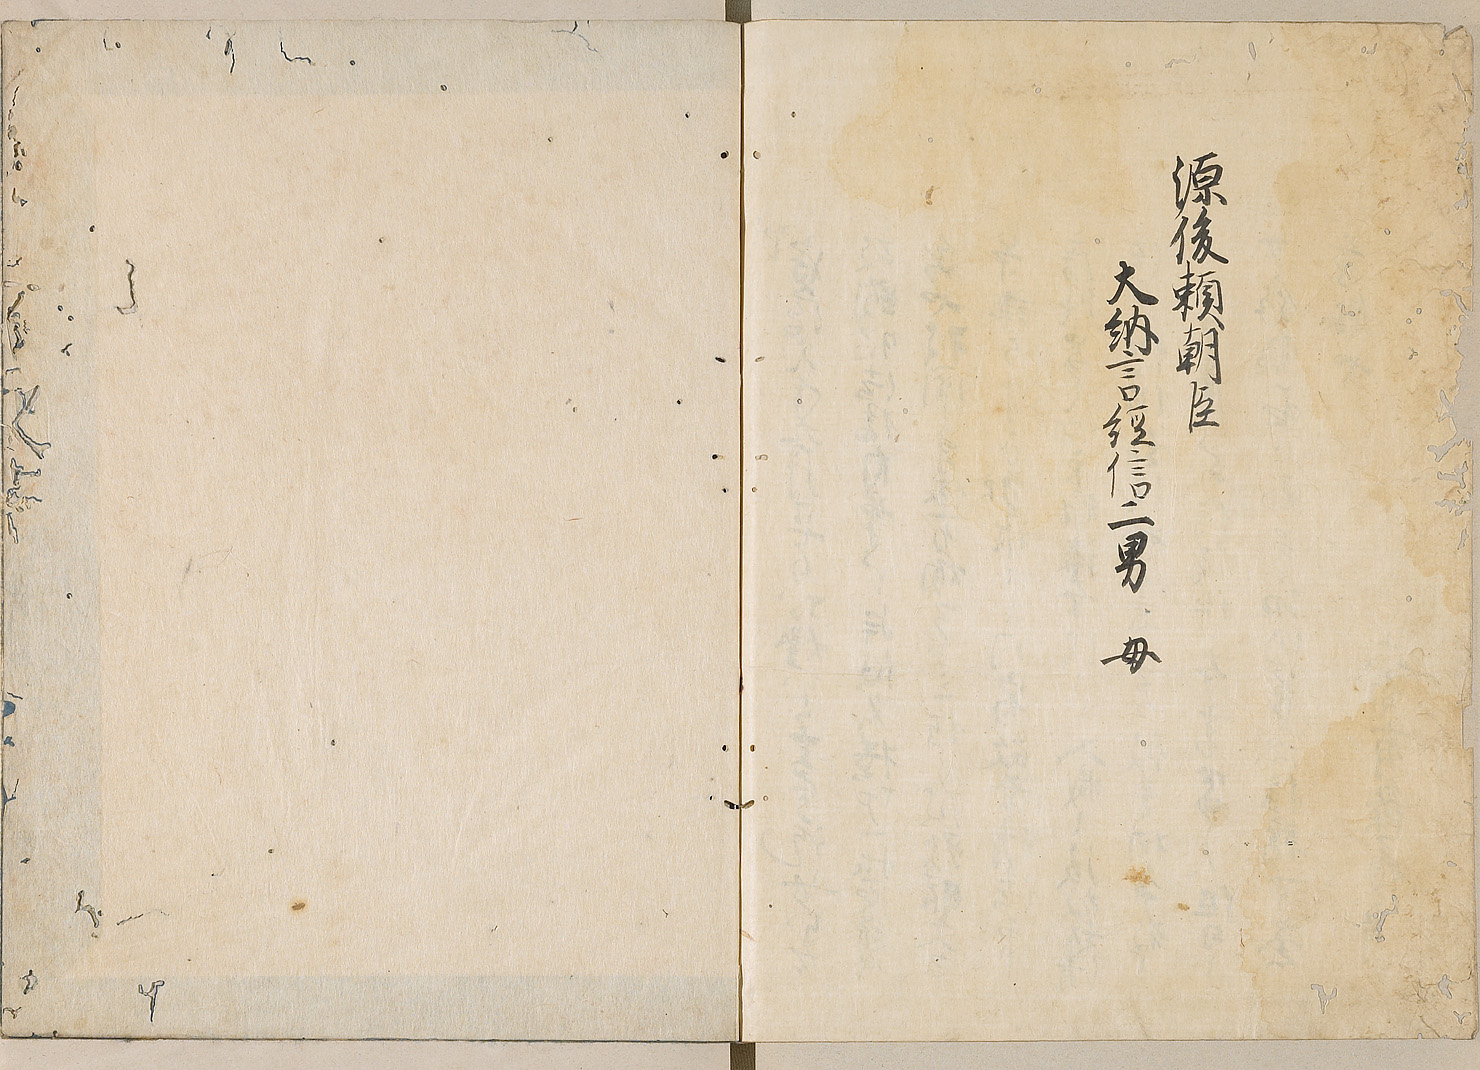 源俊頼朝臣
大納言経信二男 母